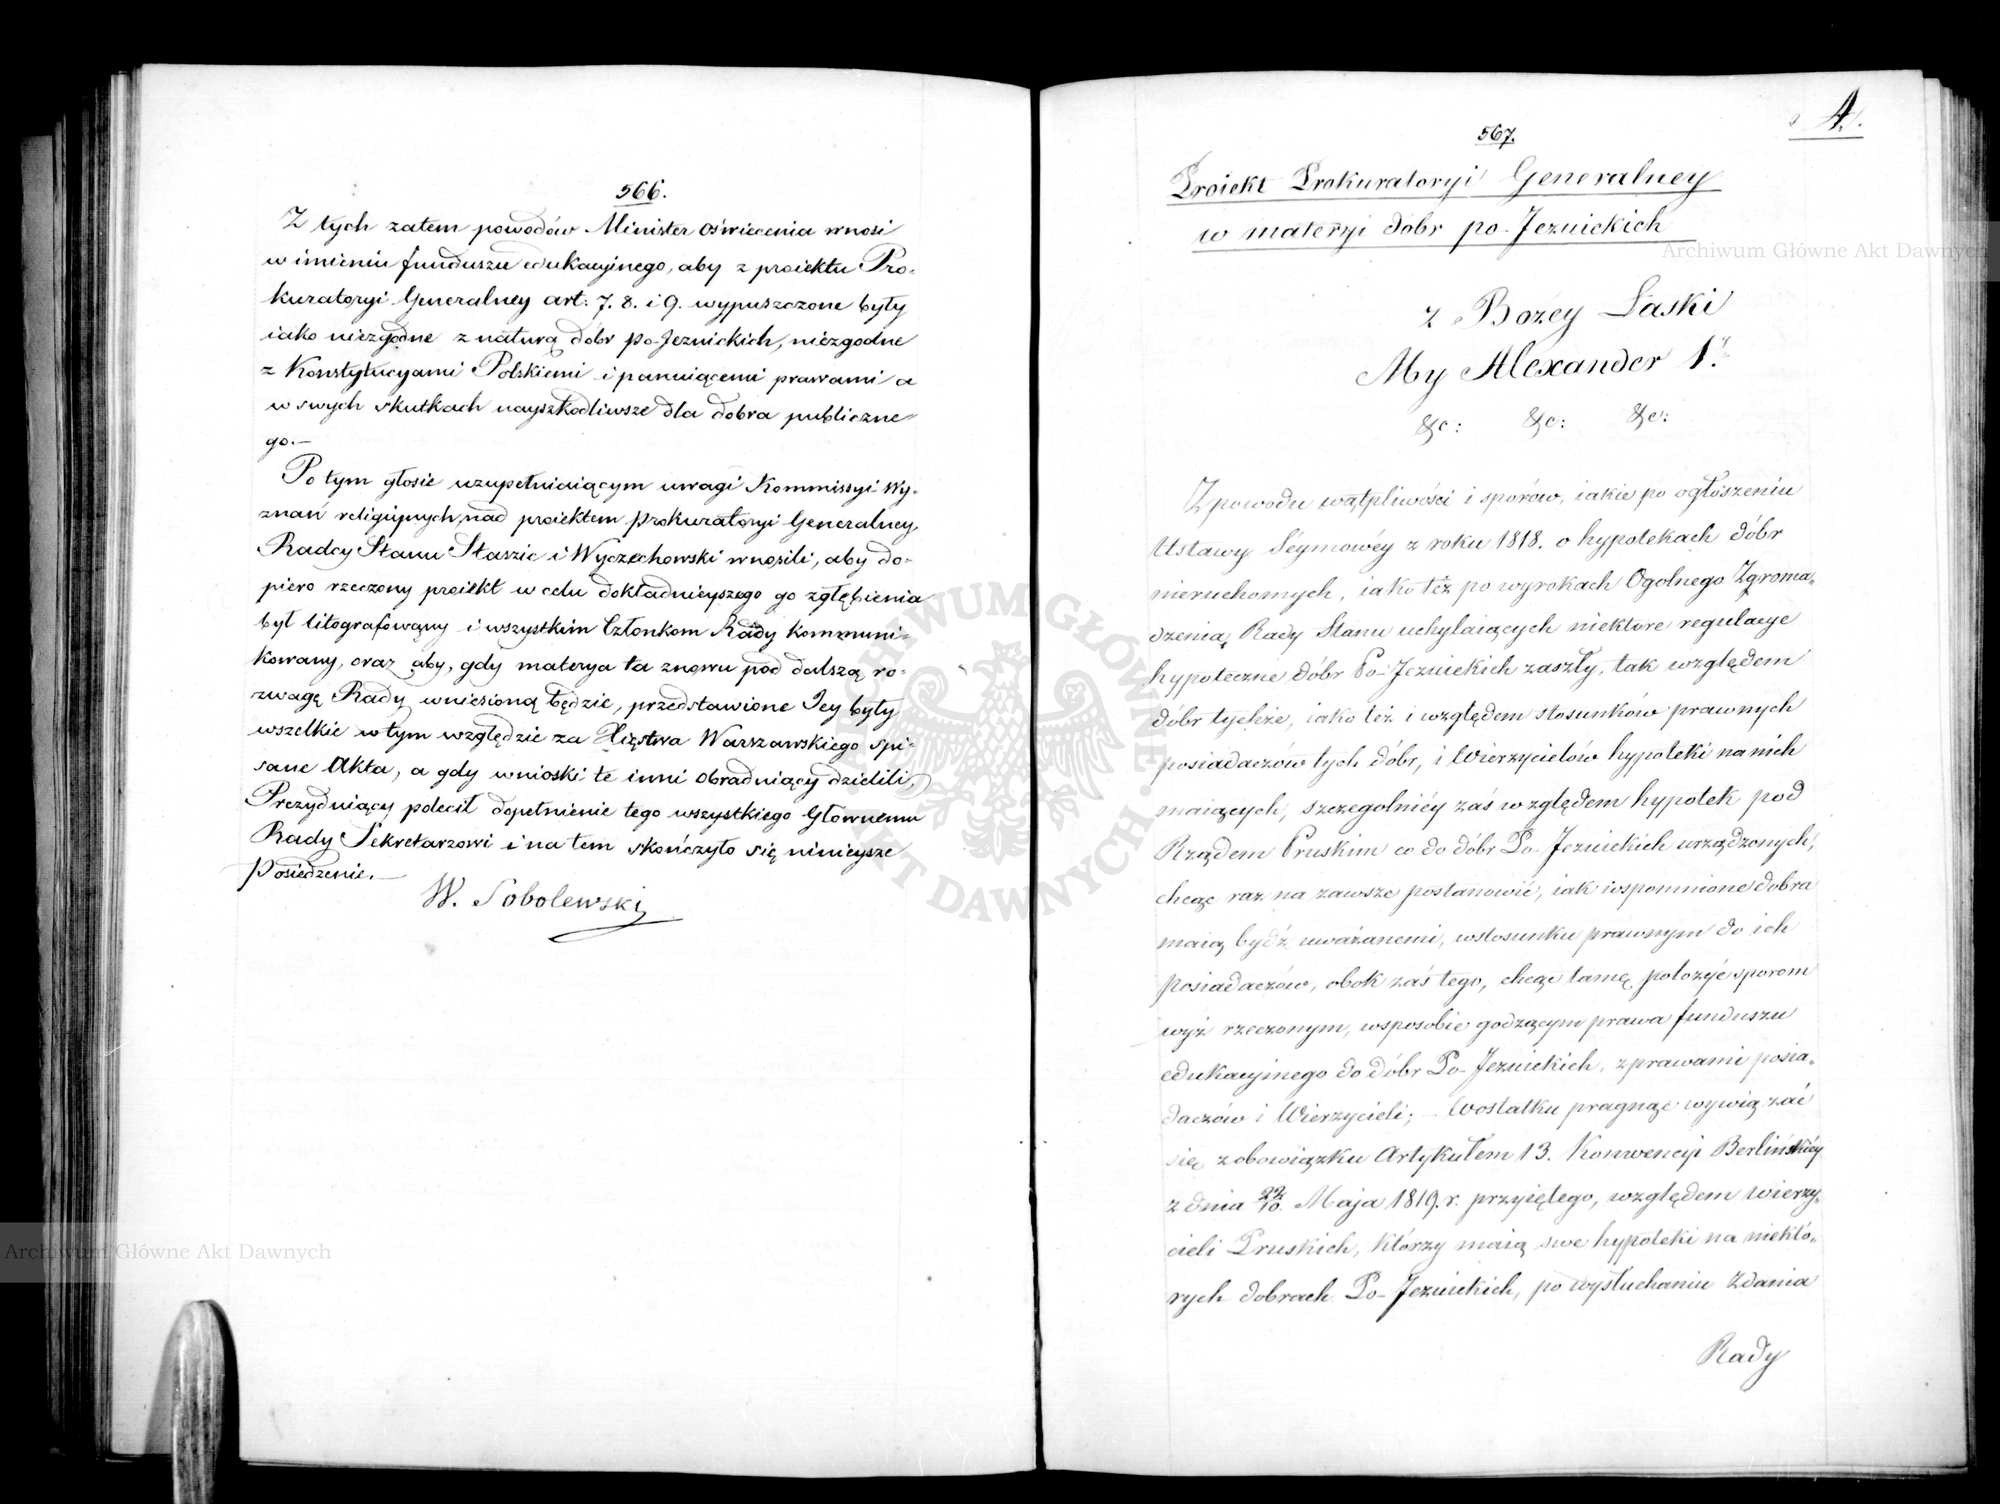 566.
Z tych zatem powodów Minister oświecenia wnosi
w imieniu funduszu edukacyinego, aby z proiektu Pro-
kuratoryi Generalney art: 7. 8. i 9. wypuszczone były
iako niezgodne z naturą dóbr po-Jezuickich, niezgodne
z Konstytucyami Polskiemi i panuiącemi prawami a
w swych skutkach nayszkodliwsze dla dobra publiczne-
go.—
Po tym głosie uzupełniaiącym uwagi Kommissyi Wy-
znań religiinych, nad proiektem Prokuratoryi Generalney,
Radcy Stanu Staszic i Wyczechowski wnosili, aby do-
piero rzeczony proiekt w celu dokładnieyszego go zgłębienia
był litografowany i wszystkim Członkom Rady kommuni-
kowany, oraz aby, gdy materya ta znowu pod dalszą ro-
zwagę Rady wniesioną będzie, przedstawione Jey były
wszelkie w tym względzie za Xięstwa Warszawskiego spi-
sane Akta, a gdy wnioski te inni obraduiący dzielili,
Prezyduiący polecił dopełnienie tego wszystkiego Głównemu
Rady Sekretarzowi i na tem skończyło się ninieysze
Posiedzenie.—
W. Sobolewski
567.
4.
Proiekt Prokuratoryi Generalney
w materyi dóbr po-Jezuickich
z Bożey Łaski
My Alexander 1.
&c: &c: &c:
Z powodu wątpliwości i sporów, iakie po ogłoszeniu
Ustawy Seymowéy z roku 1818. o hypotekach dóbr
nieruchomych, iako też po wyrokach Ogolnego Zgroma-
dzenia Rady Stanu uchylaiących niektore regulacye
hypoteczne dóbr Po-Jezuickich zaszły, tak względem
dóbr tychże, iako też i względem stosunków prawnych
posiadaczów tych dóbr, i Wierzycielów hypoteki na nich
maiących, szczegolniéy zaś względem hypotek pod
Rządem Pruskim co do dóbr Po-Jezuickich urządzonych,
chcąc raz na zawsze postanowić, iak wspomnione dobra
maią bydź uważanemi, w stosunku prawnym do ich
posiadaczów, obok zaś tego, chcąc tamę położyć sporom
wyż rzeczonym, w sposobie godzącym prawa funduszu
edukacyinego do dóbr Po-Jezuickich, z prawami posia-
daczów i Wierzycieli; – W ostatku pragnąc wywiązać
się z obowiązku Artykułem 13. Konwencyi Berlińskiéy
z dnia 22/10. Maja 1819. r. przyiętego, względem wierzy-
cieli Pruskich, którzy maią swe hypoteki na niektó-
rych dobrach Po-Jezuickich, po wysłuchaniu Zdania
Rady
Archiwum Główne Akt Dawnych
Archiwum Główne Akt Dawnych
ARCHIWUM GŁÓWNE AKT DAWNYCH